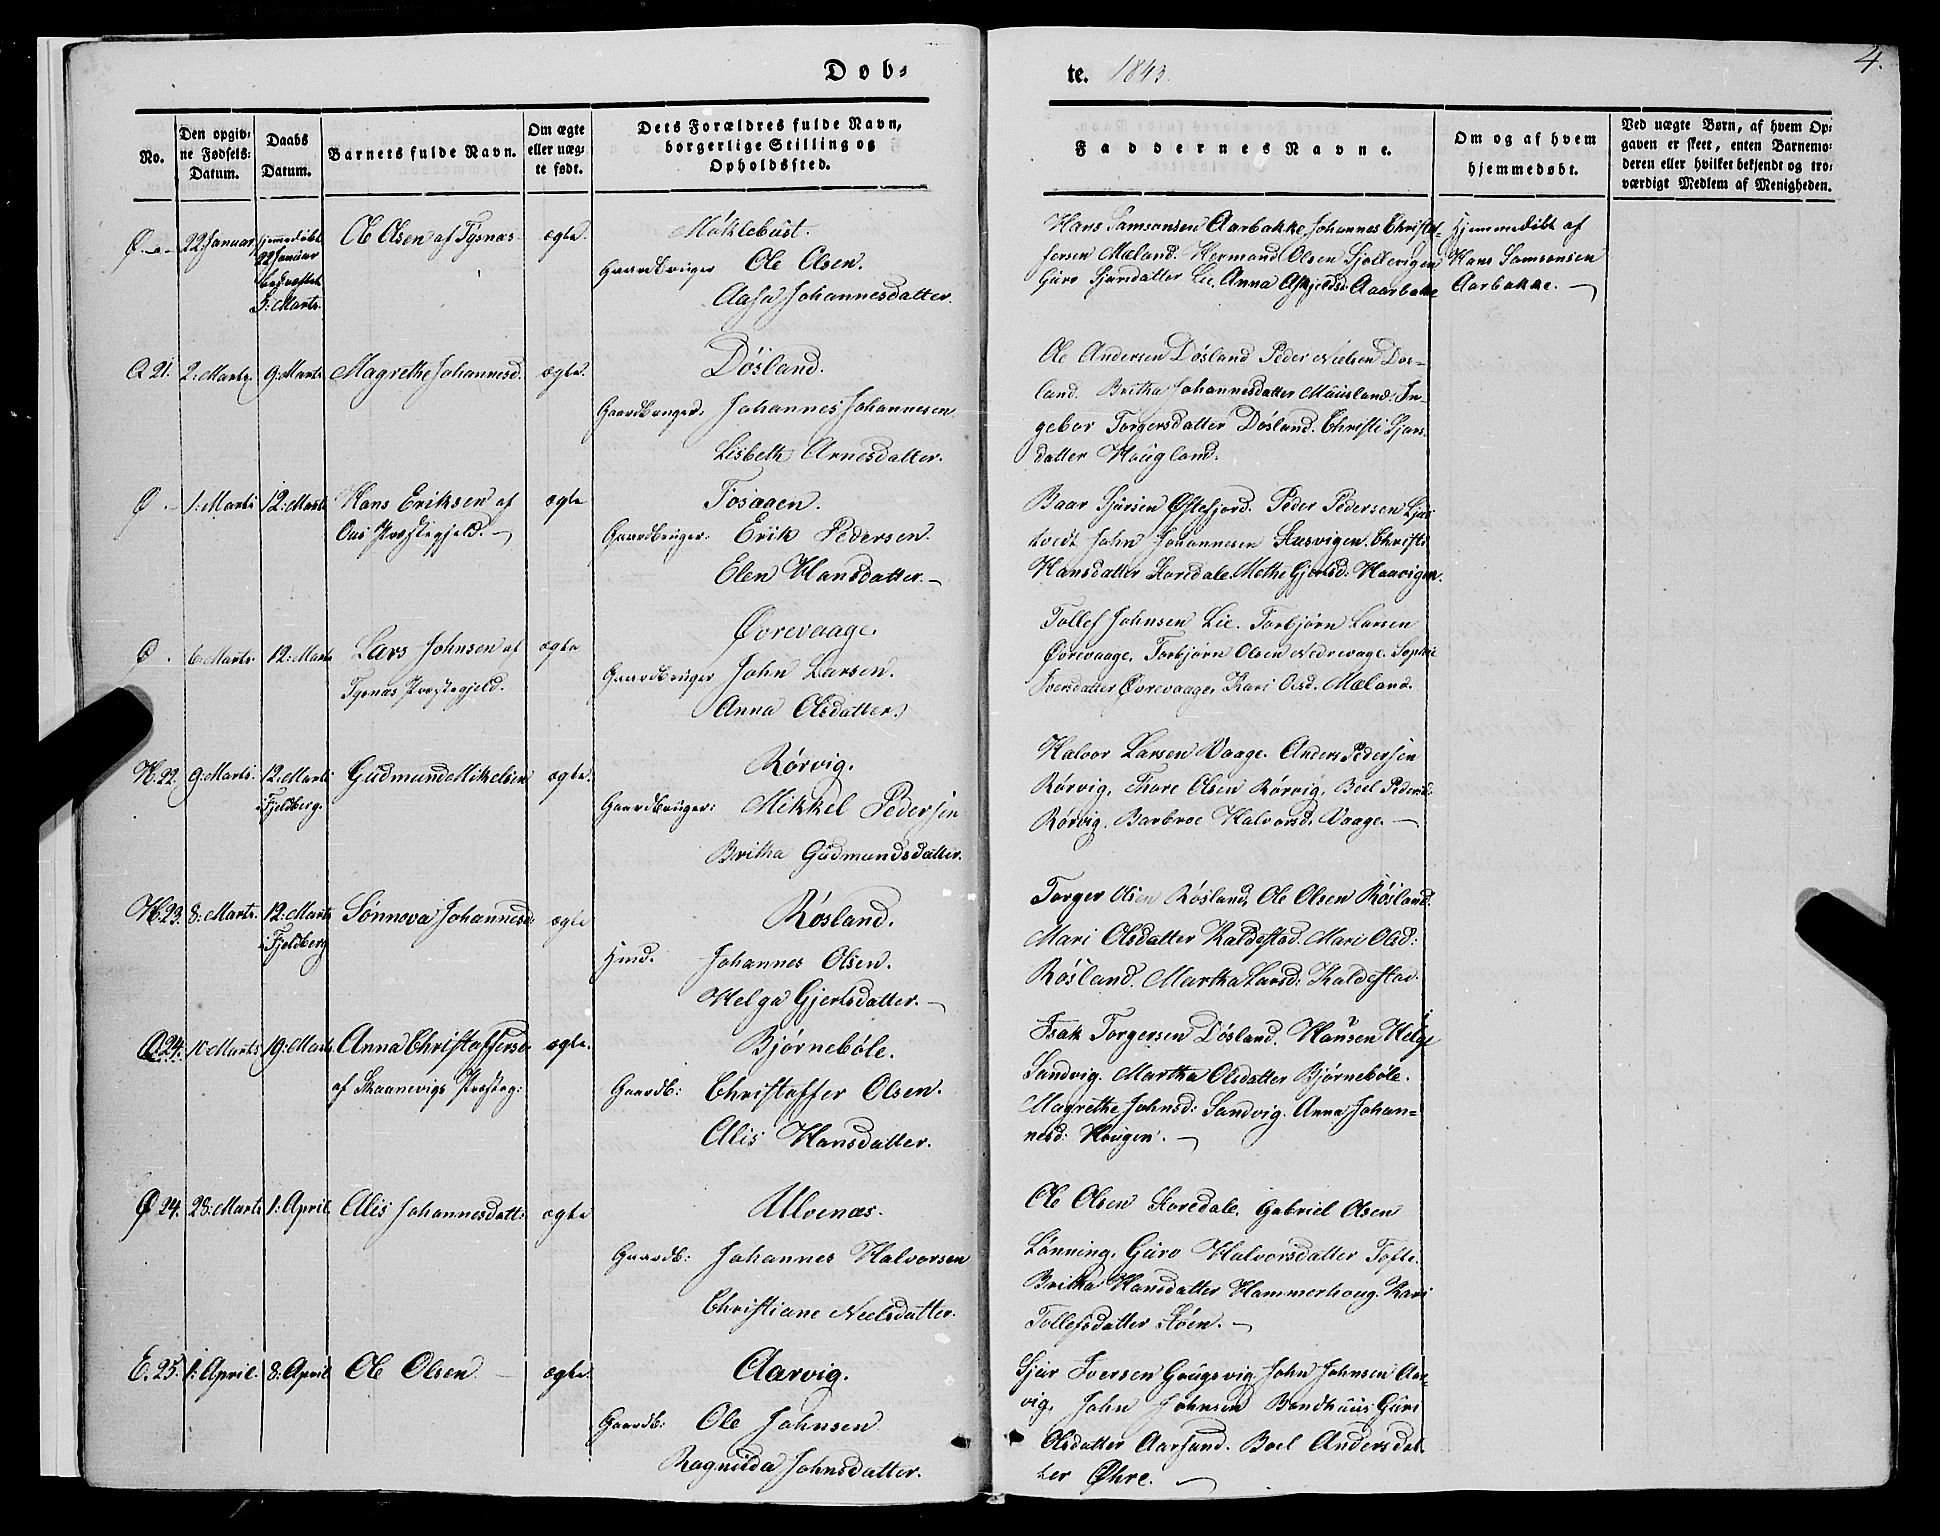 Døb-
te. 1843.
4.
No.
Den opgiv-
ne Fødsels-
Datum.
Daabs
Datum.
Barnets fulde Navn.
Om ægte
eller uæg-
te født.
Dets Forældres fulde Navn,
borgerlige Stilling og
Opholdssted.
Faddernes Navne.
Om og af hvem
hjemmedøbt.
Ved uægte Børn, af hvem Op-
gaven er skeet, enten Barnemo-
deren eller hvilket bekjendt og tro-
værdigt Medlem af Menigheden.
Ø. 22 Januar
hjemmedøbt
22 Januar
bekræftet
5. Marts.
Ole Olsen af Tysnæs
ægte.
Möklebust.
Gaardbruger Ole Olsen.
Aasa Johannesdatter.
Hans Samsonsen Aarbakke Johannes Christof-
fersen Mæland. Hermand Olsen Sjollevigen
Guro Sjursdatter Lie. Anna Askjeldsd: Aaarbakke
Hjemmedöbt af
Hans Samsonsen
Aarbakke. —
21. 2: Marts. 9. Marts Magrethe Johannesd. ægte.
Dösland.
Gaardbruger. Johannes Johannesen
Lisbeth Arnesdatter.
Ole Andersen Dösland Peder Nielsen Dös-
land. Britha Johannesdatter Müusland: In-
gebor Torgersdatter Dösland. Christi Sjurs-
datter Hougland.
Ø. 1: Marts 12: Marts Hans Eriksen af ægte
Ous Præstegjeld. —
Tosaaen.
Gaardbruger. Erik Pedersen.
Elen Hansdatter. —
Baar Sjursen Østefjord. Peder Pedersen
tvedt John Johannesen Husvigen. Christi
Hansdatter Storedale. Methe Gjertsd: Haavigen.
Ø. 6: Marts. 12: Marts Lars Johnsen af ægte
Tysnæs Præstegjeld.
Øvrevaage.
Gaardbruger John Larsen.
Anna Olsdatter.
Tollef Johnsen Lie. Torbjørn Larsen
Øvrevaage. Torbjørn Olsen Nedrevage. Sophie
Iversdatter Øvrevaage. Kari Olsd. Mæland.
H. 22. 9: Marts. 12: Marts Gudmund Mikelsen ægte.
i Fjeldberg.
Rörvig.
Gaardbruger: Mikkel Pedersen
Britha Gudmundsdatter.
Halvor Larsen Vaage. Anders Pedersen
Rörvig. Thore Olsen Rörvig. Boel Pedersd:
Rörvig. Barbroe Halvorsd. Vaage. —
H. 23. 8: Marts. 12: Marts Sönnova Johannesd. ægte
i Fjeldberg
Rösland.
Huusmd. Johannes Olsen.
Helga Gjertsdatter. —
Torger Olsen Rösland, Ole Olsen Rösland.
Mari Olsdatter Kaldestad. Mari Olsd:
Rösland. Martha Larsd: Kaldestad.
24. 10 Marts 19: Marts Anna Christoffersd. ægte.
af Skaanevigs Præsteg:
Björneböle.
Gaardb: Christoffer Olsen.
Alis Hansdatter.
Isak Torgersen Dösland. Hansen Helge
Sandvig. Martha Olsdatter Björneböle.
Magrethe Johnsd: Sandvig. Anna Johan-
nesd: Hougen. —
Ø 24. 28: Marts 1: April. Alis Johannesdatt: ægte
Ulvenæs.
Gaardb: Johannes Halvorsen
Christiane Neelsdatter.
Ole Olsen Storedale. Gabriel Olsen
Lönning. Guro Halvorsdatter Tofte.
Britha Hansdatter Hammerhoug. Kari
Tollefsdatter Stöen. —
E. 25. 1: April. 8: April Ole Olsen — ægte.
Aarvig.
Gaardb: Ole Johnsen
Ragnilda Johnsdatter.
Sjur Iversen Gougsvig John Johnsen Aar-
vig. John Johnsen Bondhuus Guri
Olsdatter Aarsund. Boel Andersdat-
ter Øhre. —